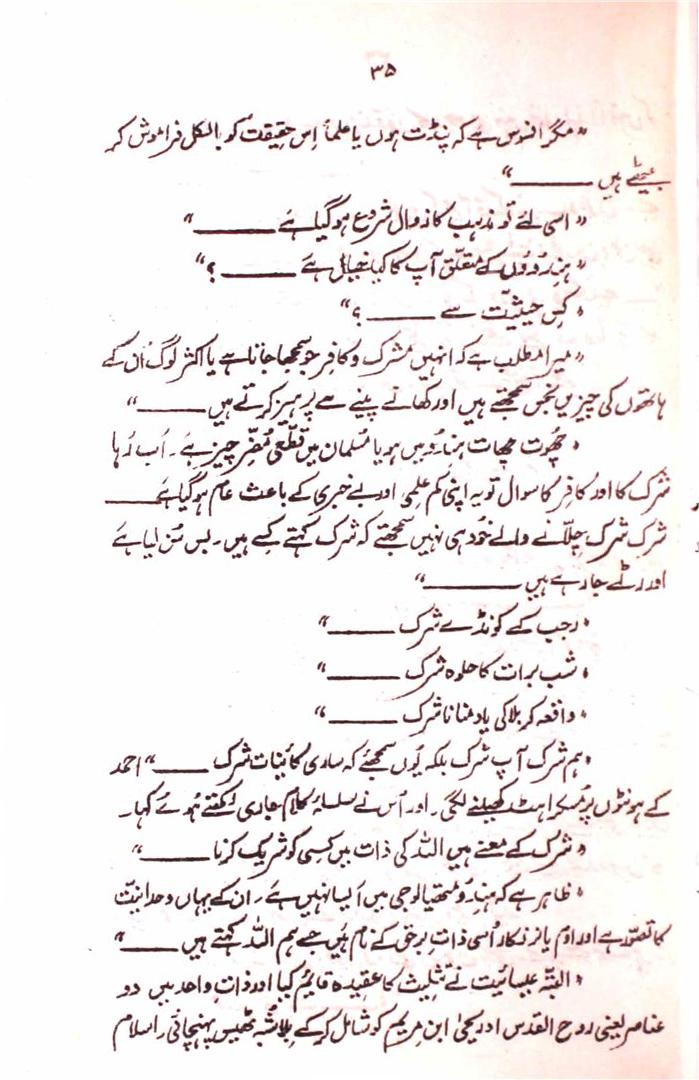 ۳۵
"مگر افسوس ہے کہ پنڈت ہوں یا علماٗ اِس حقیقت کو بالکل فراموش کر
بیٹھے ہیں ـــــــــ"
"اسی لئے تو مذہب کا زوال شروع ہوگیا ہے ـــــــــ"
"ہندوؤں کے متعلّق آپ کا کیا خیال ہے ـــــــــ ؟"
"کِس حیثیّت سے ـــــــــ ؟"
"میرا مطلب ہے کہ انہیں مُشرک و کافر جو سمجھا جاتا ہے یا اکثر لوگ اُن کے
ہاتھوں کی چیزیں نجس سمجھتے ہیں اور کھانے پینے سے پرہیز کرتے ہیں ـــــــــ"
"چھُوت چھات ہندو میں ہو یا مُسلمان میں قطعی مُضِر چیز ہے۔ اَب رہا
شرک کا اور کافِر کا سوال تو یہ اپنی کم علمی اور بے خبری کے باعث عام ہوگیا ہے ـــــــــ
شرک شرک چِلّانے والے خُود ہی نہیں سمجھتے کہ شرک کہتے کِسے ہیں۔ بس سُن لیا ہے
اور رٹے جارہے ہیں ـــــــــ"
"رجب کے کونڈے شرک ـــــــــ"
"شب برات کا حلوہ شرک ـــــــــ"
"واقعہ کربلا کی یاد منانا شرک ـــــــــ"
"ہم شرک آپ شرک بلکہ یُوں سمجھئے کہ ساری کائینات شرک ـــــــــ" احمد
کے ہونٹوں پر مُسکراہٹ کھیلنے لگی۔ اور اُس نے سلسلۂ کلام جاری رکھتے ہُوئے کہا۔
"شرک کے معنے ہیں اللہ کی ذات میں کسی کو شریک کرنا ـــــــــ"
"ظاہر ہے کہ ہندو متھیالوجی میں ایسا نہیں ہے۔ ان کے یہاں وحدانیّت
کا تصوّر ہے اور اوم یا نرنکار اُسی ذاتِ برحق کے نام ہیں جسے ہم اللہ کہتے ہیں ـــــــــ"
"البتّہ عیسائیت نے تثلیث کا عقیدہ قائیم کیا اور ذاتِ واحد میں دو
عناصر یعنی روح القدس اور یحییٰ ابن مریم کو شامل کرکے بلاشبہ ٹھیس پہنچائی۔ اسلام